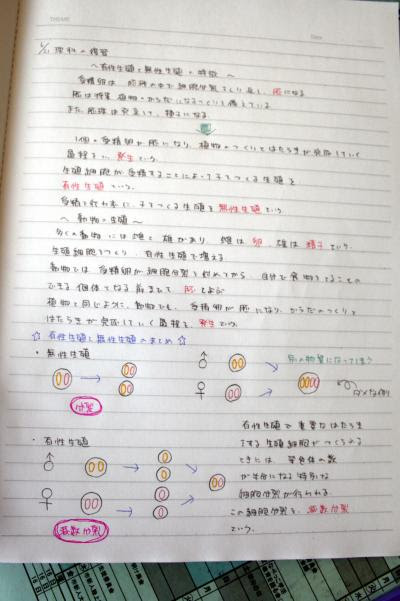 THEME
Date
6/21 理科の復習
〜有性生殖と無性生殖の特徴〜
受精卵は胚珠の中で細胞分裂をくり返し、胚になる
胚は将来、植物のからだになるつくりを備えている
また、胚珠は発育して、種子になる
1個の受精卵が胚になり、植物のつくりとはたらきが完成していく
過程を、発生という。
生殖細胞が受精することによって子をつくる生殖を
有性生殖という。
受精を行わずに、子をつくる生殖を無性生殖という。
〜動物の生殖〜
多くの動物には雌と雄があり、雌は卵、雄は精子という、
生殖細胞をつくり、有性生殖で増える
動物では受精卵が細胞分裂を始めてから、自分で食物をとることの
できる個体となる前までを胚とよぶ
植物と同じように、動物でも、受精卵が胚になり、からだのつくりと
はたらきが完成していく過程を、発生という。
☆有性生殖と無性生殖のまとめ☆
・無性生殖
♂
別の物質になってしまう
♀
ダメな例
分裂
・有性生殖
♂
♀
減数分裂
有性生殖で重要なはたらき
をする生殖細胞がつくられる
ときには、染色体の数
が半分になる特別な
細胞分裂が行われる。
この細胞分裂を、減数分裂
という。